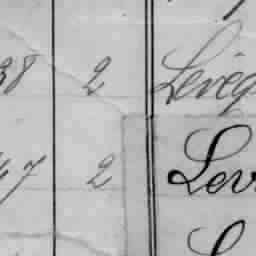 38 2 Levêq
47 2 Lev